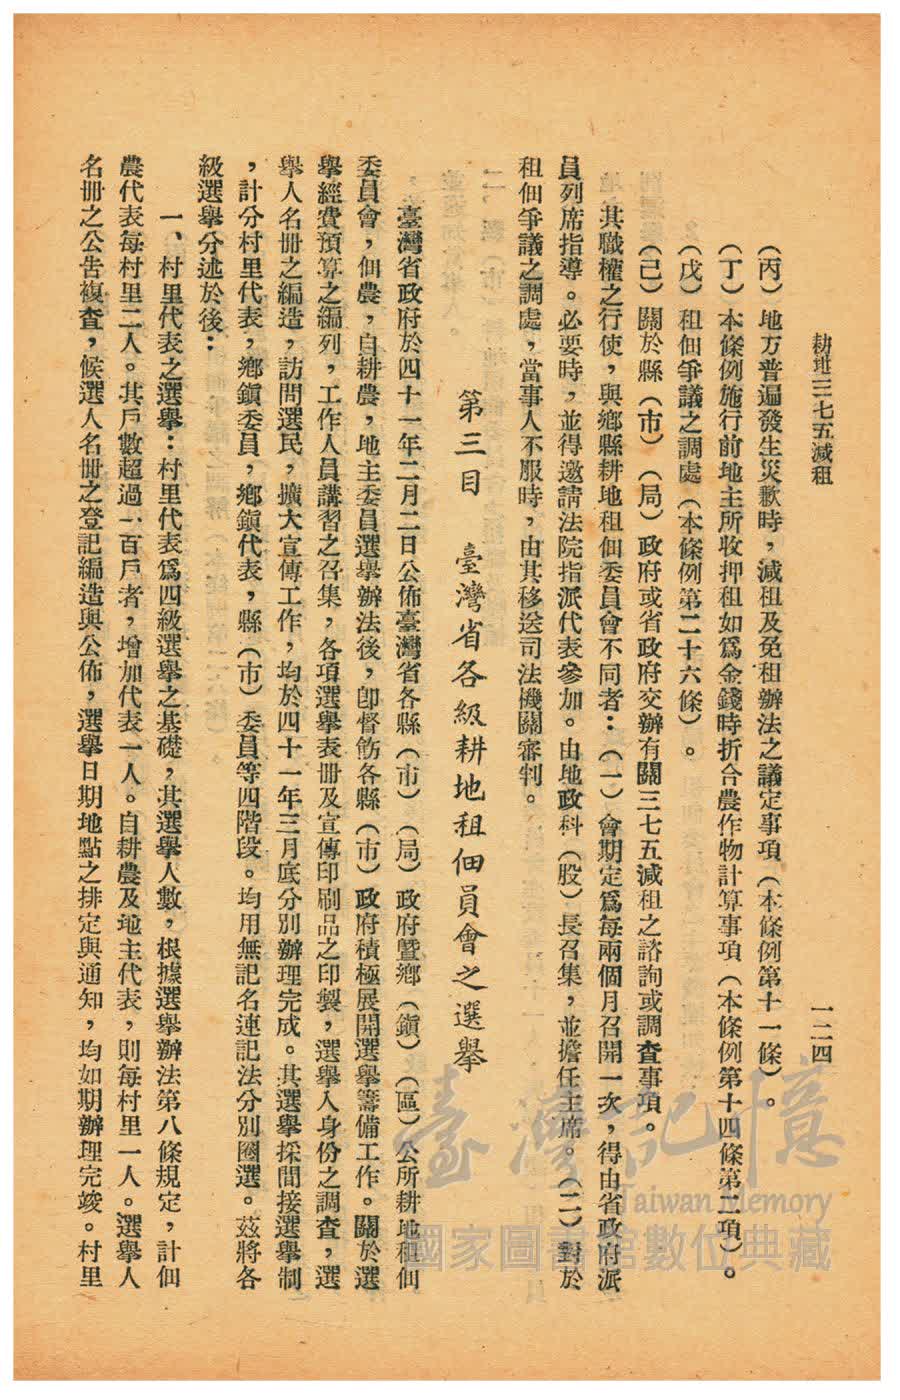 耕地三七五減租
一二四
（丙）地方普遍發生災歉時，減租及免租辦法之議定事項（本條例第十一條）。
（丁）本條例施行前地主所收押租如爲金錢時折合農作物計算事項（本條例第十四條第二項）。
（戊）租佃爭議之調處（本條例第二十六條）。
（己）關於縣（市）（局）政府或省政府交辦有關三七五減租之諮詢或調査事項。
其職權之行使，與鄉縣耕地租佃委員會不同者：（一）會期定爲每兩個月召開一次，得由省政府派
員列席指導。必要時，並得邀請法院指派代表參加。由地政科（股）長召集，並擔任主席。（二）對於
租佃爭議之調處，當事人不服時，由其移送司法機關審判。
第三目　臺灣省各級耕地租佃員會之選舉
臺灣省政府於四十一年二月二日公佈臺灣省各縣（市）（局）政府曁鄉（鎭）（區）公所耕地租佃
委員會，佃農，自耕農，地主委員選舉辦法後，卽督飭各縣（市）政府積極展開選舉籌備工作。關於選
舉經費預算之編列，工作人員講習之召集，各項選舉表册及宣傳印刷品之印製，選舉人身份之調査，選
舉人名册之編造，訪問選民，擴大宣傳工作，均於四十一年三月底分別辦理完成。其選舉採間接選舉制
，計分村里代表，鄉鎭委員，鄉鎭代表，縣（市）委員等四階段。均用無記名連記法分別圈選。茲將各
級選舉分述於後：
一、村里代表之選舉：村里代表爲四級選舉之基礎，其選舉人數，根據選舉辦法第八條規定，計佃
農代表每村里二人。其戶數超過一百戶者，增加代表一人。自耕農及地主代表，則每村里一人。選舉人
名册之公告複査，候選人名册之登記編造與公佈，選舉日期地點之排定與通知，均如期辦理完竣。村里
臺灣記憶
Taiwan Memory
國家圖書館數位典藏